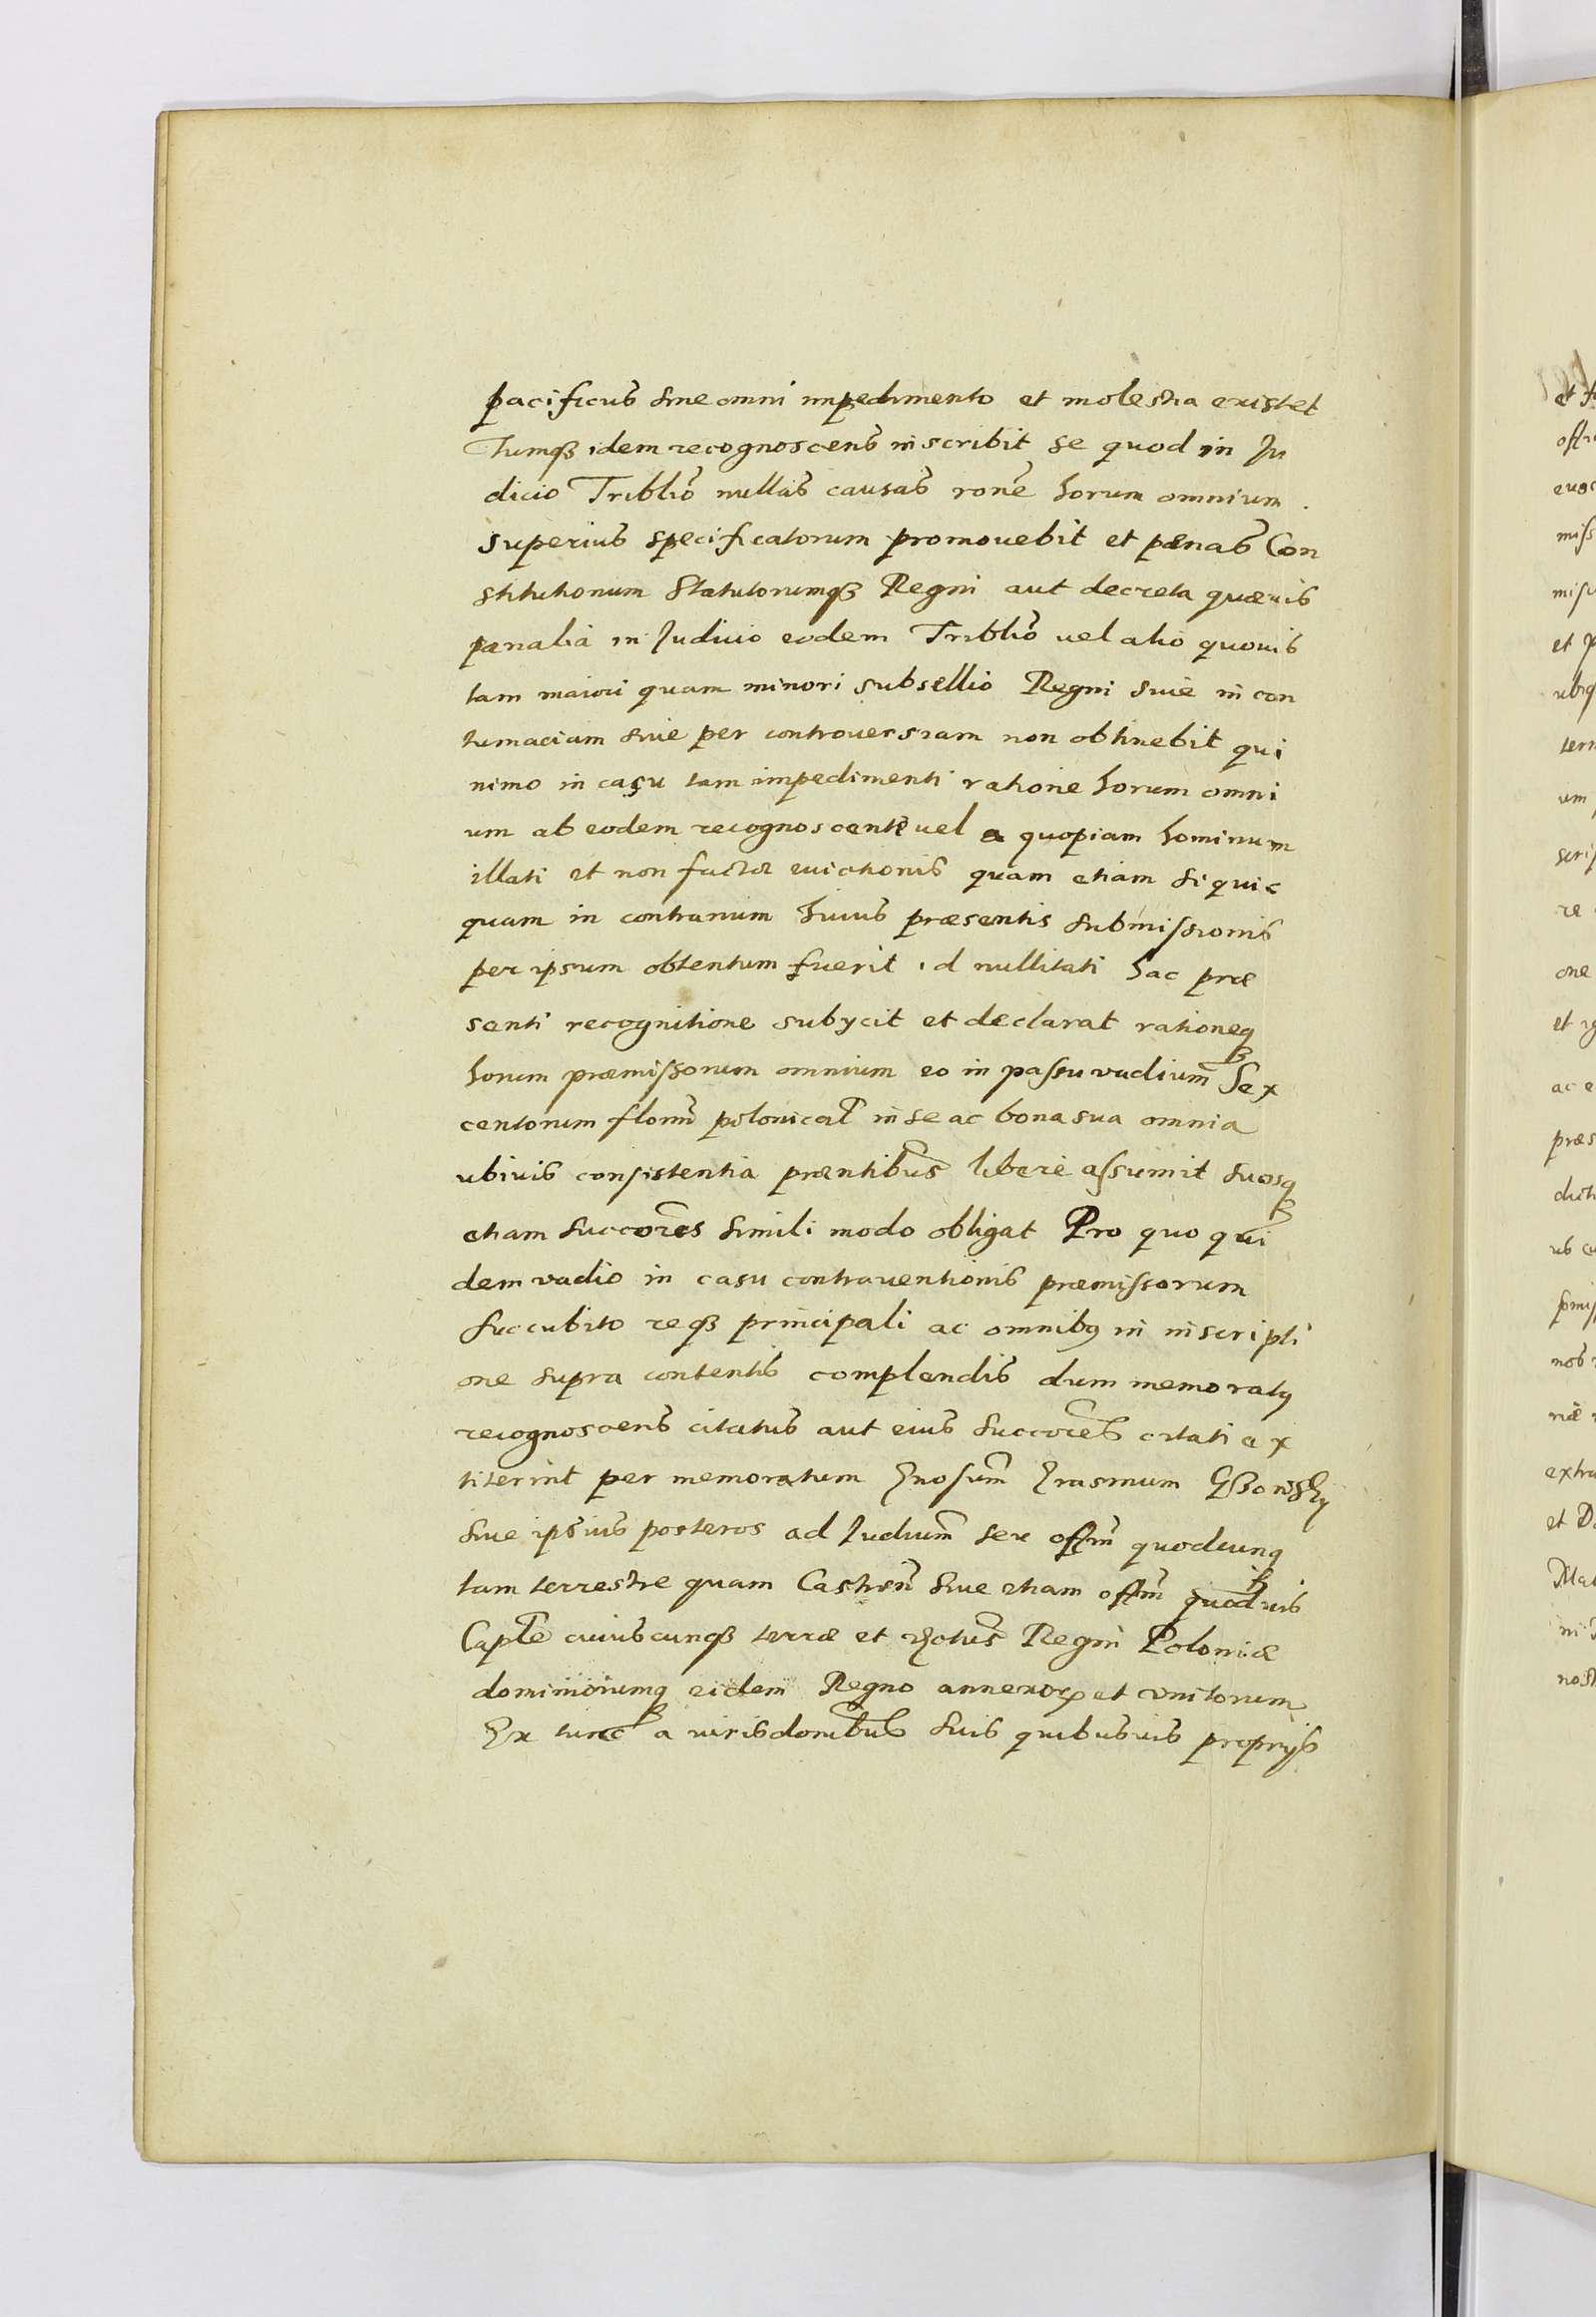 pacificus sine omni impedimento et molestia existet
Tumq₃ idem recognoscens inscribit se quod in Ju
dicio Triblīo nullas causas ronē horum omnium
superius specificatorum promouebit et pænas Con
stitutionum Statutorumq₃ Regni aut decreta quæuis
pænalia in Judicio eodem Triblīo uel alio quouis
tam maiori quam minori subsellio Regni siue in con
tumaciam siue per controuersiam non obtinebit qui
nimo in casu tam impedimenti ratione horum omni
um ab eodem recognoscente uel a quopiam hominum
illati et non factæ euictionis quam etiam si quic
quam in contrarium huius præsentis submissionis
per ipsum obtentum fuerit id nullitati hac præ
senti recognitione subycit et declarat rationeq₃
horum præmissorum omnium eo in passu vadium̄ Sex
centorum florm̄ polonical̄ in se ac bona sua omnia
ubiuis consistentia præntibus̄ libere assumit suosq₃
etiam succores̄ simili modo obligat Pro quo qui
dem vadio in casu contrauentionis præmissorum
succubito req₃ principali ac omnib9 in inscripti
one supra contentis complendis dum memorat9
recognoscens citatus aut eius succores̄ citati ex
titerint per memoratum Gnosum̄ Erasmum
siue ipsius posteros ad Judium̄ seu offm̄ quodcunq₃
tam terrestre quam Castren̄ siue etiam offm̄ quoduis
Caple̅ cuiuscunq₃ terræ et Regni Poloniæ
dominiorumq₃ eidem Regno annexor et vnitorum
Ex tunc a iurisdonibus̄ suis quibusuis proprijs